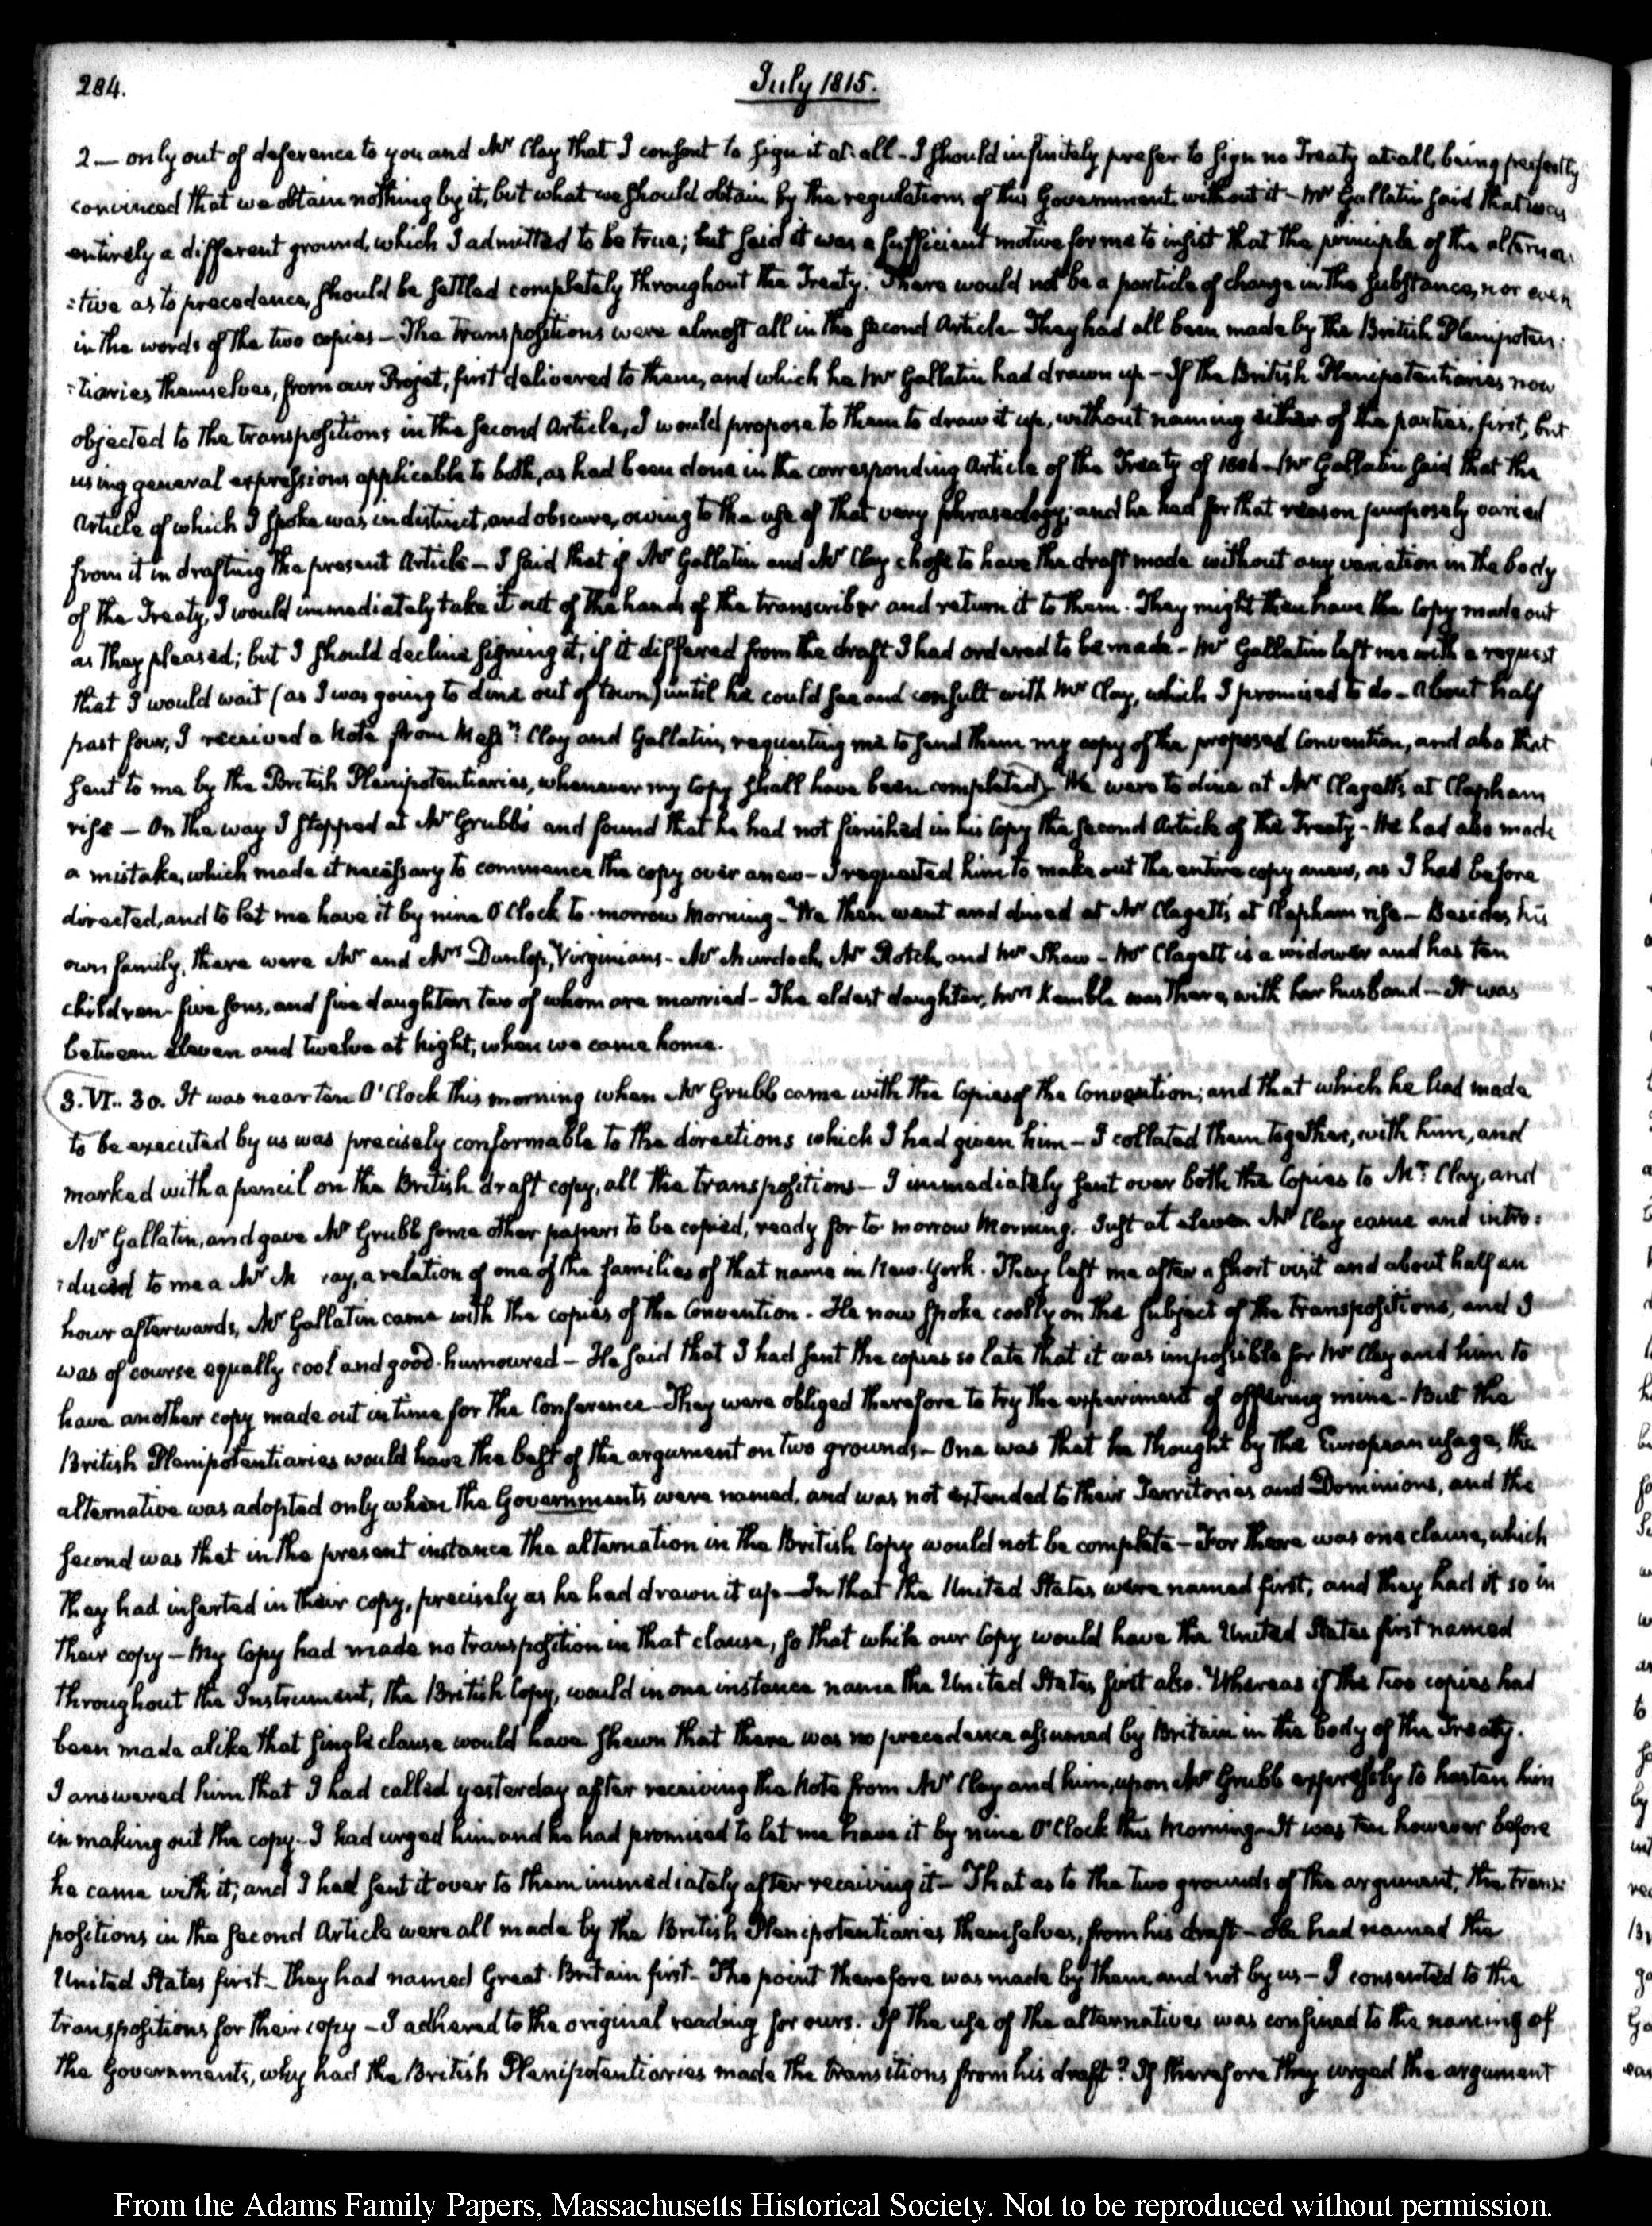 284.
July 1815.
2 — only out of deference to you and Mr Clay that I consent to sign it at all - I should infinitely prefer to sign no Treaty at all, being perfectly
convinced that we obtain nothing by it, but what we should obtain by the regulations of this Government without it - Mr Gallatin said that was
entirely a different ground, which I admitted to be true; but said it was a sufficient motive for me to insist that the principle of the alterna:
:tive as to precedence, should be settled completely throughout the Treaty. There would not be a particle of change in the substance, nor even
in the words of the two copies - The transpositions were almost all in the second Article - They had all been made by the British Plenipoten:
:tiaries themselves, from our Projet, first delivered to them, and which he Mr Gallatin had drawn up - If the British Plenipotentiaries now
objected to the transpositions in the second Article, I would propose to them to draw it up, without naming either of the parties, first, but
using general expressions applicable to both, as had been done in the corresponding Article of the Treaty of 1806 - Mr Gallatin said that the
Article of which I spoke was indistinct, and obscure, owing to the use of that very phraseology; and he had for that reason purposely varied
from it in drafting the present Article - I said that if Mr Gallatin and Mr Clay chose to have the draft made without any variation in the body
of the Treaty, I would immediately take it out of the hands of the transcriber and return it to them. They might then have the Copy made out
as they pleased; but I should decline signing it, if it differed from the draft I had ordered to be made - Mr Gallatin left me with a request
that I would wait (as I was going to dine out of town) until he could see and consult with Mr Clay, which I promised to do - About half
past four, I received a Note from Messrs Clay and Gallatin, requesting me to send them my copy of the proposed Convention, and also that
sent to me by the British Plenipotentiaries, whenever my Copy shall have been completed) - We were to dine at Mr Clagett's at Clapham
rise — On the way I stopped at Mr Grubb's and found that he had not finished in his Copy the second Article of the Treaty - He had also made
a mistake, which made it necessary to commence the copy over anew - I requested him to make out the entire copy anew, as I had before
directed, and to let me have it by nine O'Clock to-morrow Morning - We then went and dined at Mr Clagett's at Clapham rise - Besides his
own family, there were Mr and Mrs Dunlop, Virginians - Mr Murdoch, Mr Rotch, and Mr Shaw - Mr Clagett is a widower and has ten
children - five sons, and five daughters two of whom are married - The eldest daughter, Mrs Kemble was there, with her husband - It was
between eleven and twelve at night, when we came home.
3. VI.. 30. It was near ten O'Clock this morning when Mr Grubb came with the Copies of the Convention; and that which he had made
to be executed by us was precisely conformable to the directions which I had given him - I collated them together, with him, and
marked with a pencil on the British draft copy, all the transpositions - I immediately sent over both the Copies to Mr. Clay, and
Mr Gallatin, and gave Mr Grubb some other papers to be copied, ready for to-morrow Morning. Just at eleven Mr Clay came and intro:
:duced to me a Mr M ray, a relation of one of the families of that name in New-York. They left me after a short visit and about half an
hour afterwards, Mr Gallatin came with the copies of the Convention - He now spoke coolly on the subject of the transpositions, and I
was of course equally cool and good-humoured - He said that I had sent the copies so late that it was impossible for Mr Clay and him to
have another copy made out in time for the Conference - They were obliged therefore to try the experiment of offering mine - But the
British Plenipotentiaries would have the best of the argument on two grounds - One was that he thought by the European usage, the
alternative was adopted only when the Governments were named, and was not extended to their Territories and Dominions, and the
second was that in the present instance the alternation in the British Copy would not be complete - For there was one clause, which
they had inserted in their copy, precisely as he had drawn it up - In that the United States were named first, and they had it so in
their copy - My Copy had made no transposition in that clause, so that while our Copy would have the United States first named
throughout the Instrument, the British Copy, would in one instance name the United States first also. Whereas if the two copies had
been made alike that single clause would have shewn that there was no precedence assumed by Britain in the body of the Treaty.
I answered him that I had called yesterday after receiving the Note from Mr Clay and him, upon Mr Grubb expressly to hasten him
in making out the copy - I had urged him and he had promised to let me have it by nine O'Clock this Morning - It was ten however before
he came with it; and I had sent it over to them immediately after receiving it - That as to the two grounds of the argument, the trans:
positions in the second Article were all made by the British Plenipotentiaries themselves, from his draft - He had named the
United States first - They had named Great-Britain first - The point therefore was made by them, and not by us - I consented to the
transpositions for their copy - I adhered to the original reading for ours. If the use of the alternatives was confined to the naming of
the Governments, why had the British Plenipotentiaries made the transitions from his draft? If therefore they urged the argument
From the Adams Family Papers, Massachusetts Historical Society. Not to be reproduced without permission.